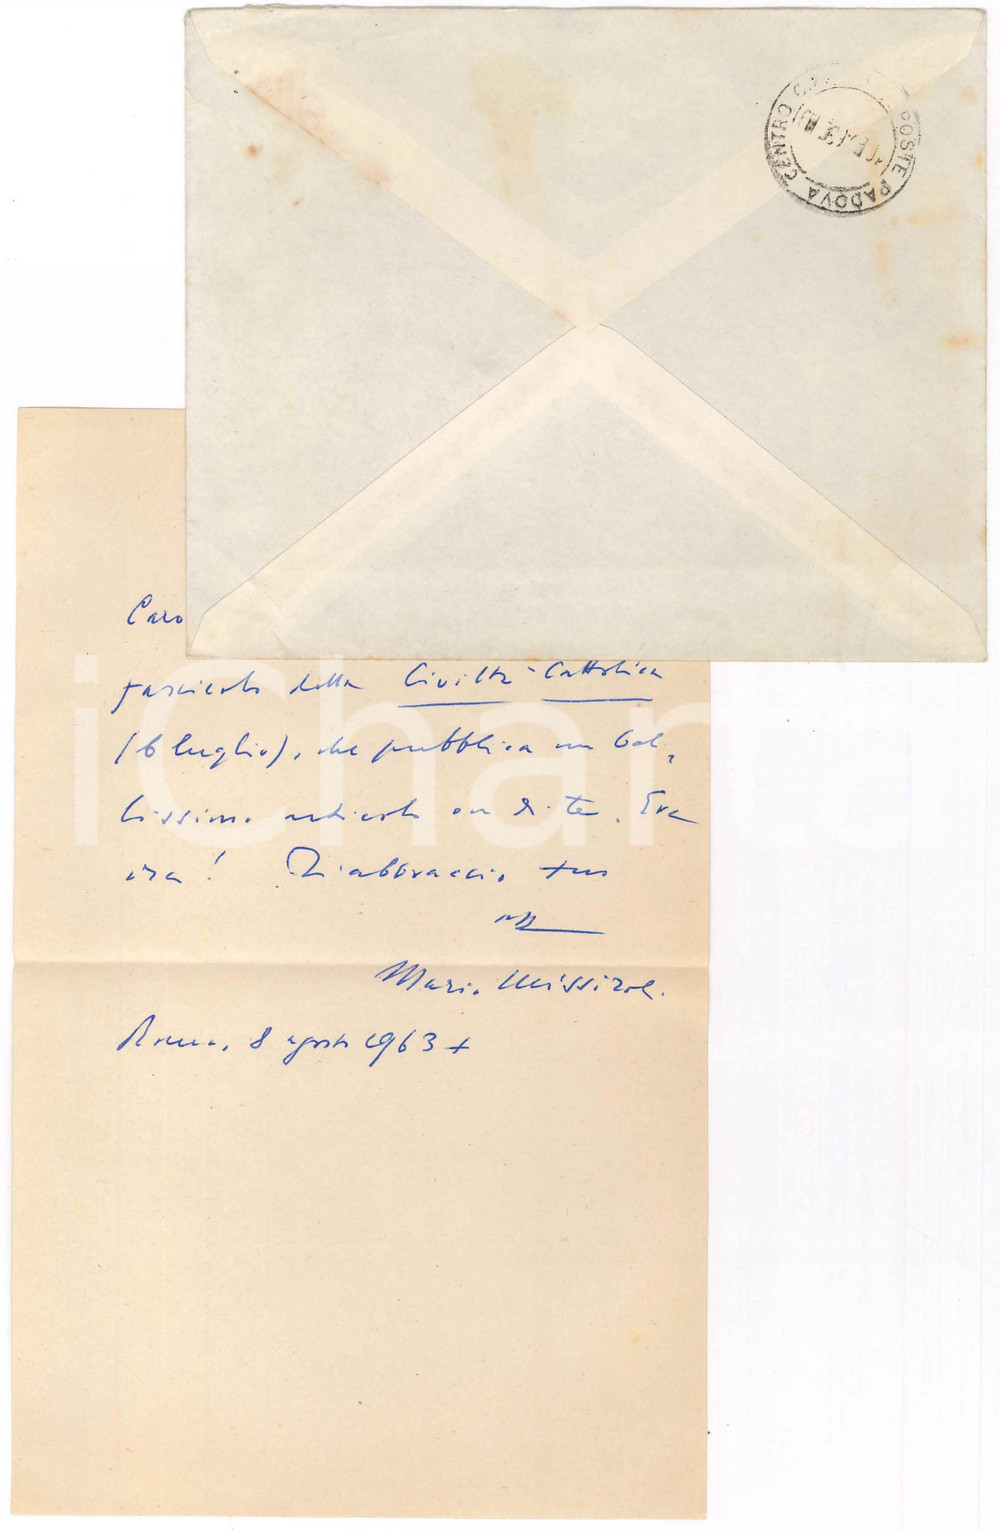 CENTRO POSTE PADOVA
Caro
fascicolo della Civiltà Cattolica
(6 luglio), che pubblica un bel-
lissimo articolo su di te. Era
ora! Ti abbraccio, tuo
Mario Missiroli.
Roma, 8 agosto 1963 +
iCharta